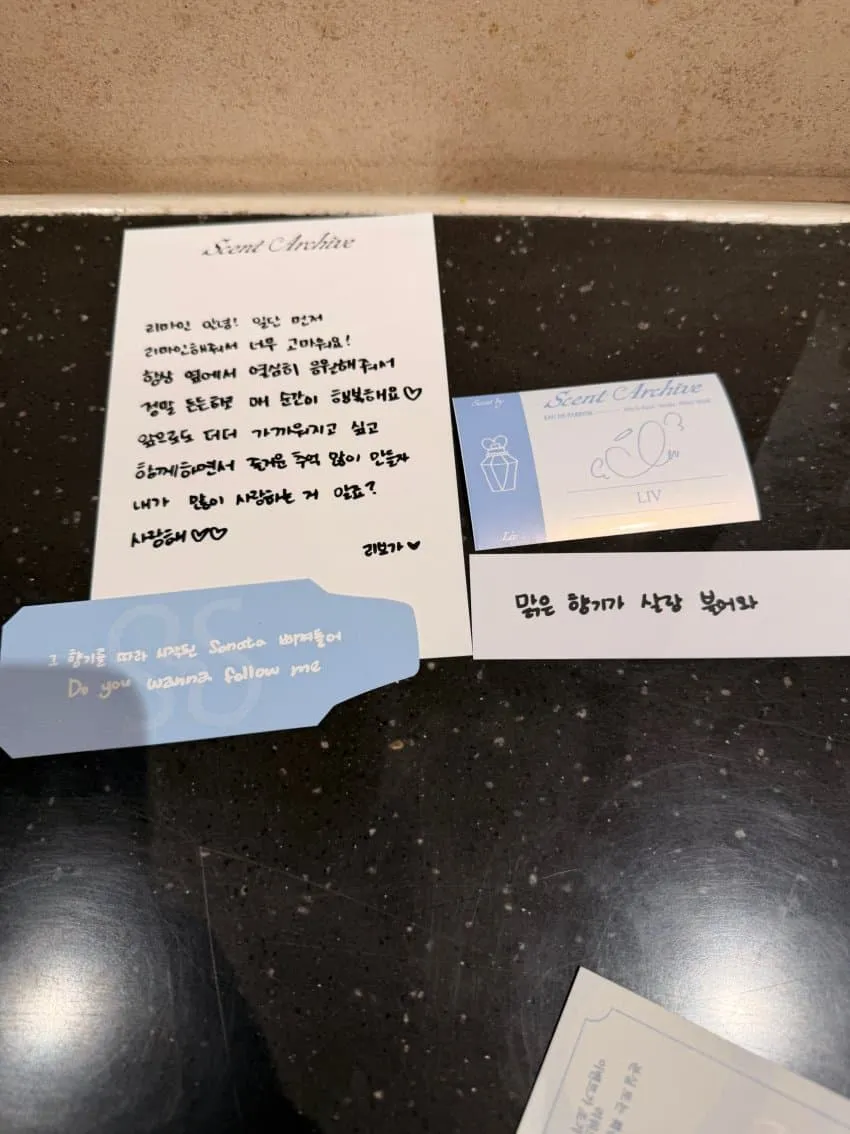 Scent Archive
리마인 안녕! 일단 먼저
리마인해줘서 너무 고마워요!
항상 옆에서 열심히 응원해줘서
정말 든든하고 매 순간이 행복해요♡
앞으로도 더더 가까워지고 싶고
함께하면서 즐거운 추억 많이 만들자
내가 많이 사랑하는 거 알죠?
사랑해♡♡
리브가♥
Scent by
Liv
Scent Archive
EAU DE PARFUM
LIV
맑은 향기가 살랑 불어와
그 향기를 따라 시작된 Sonata 빠져들어
Do you wanna follow me